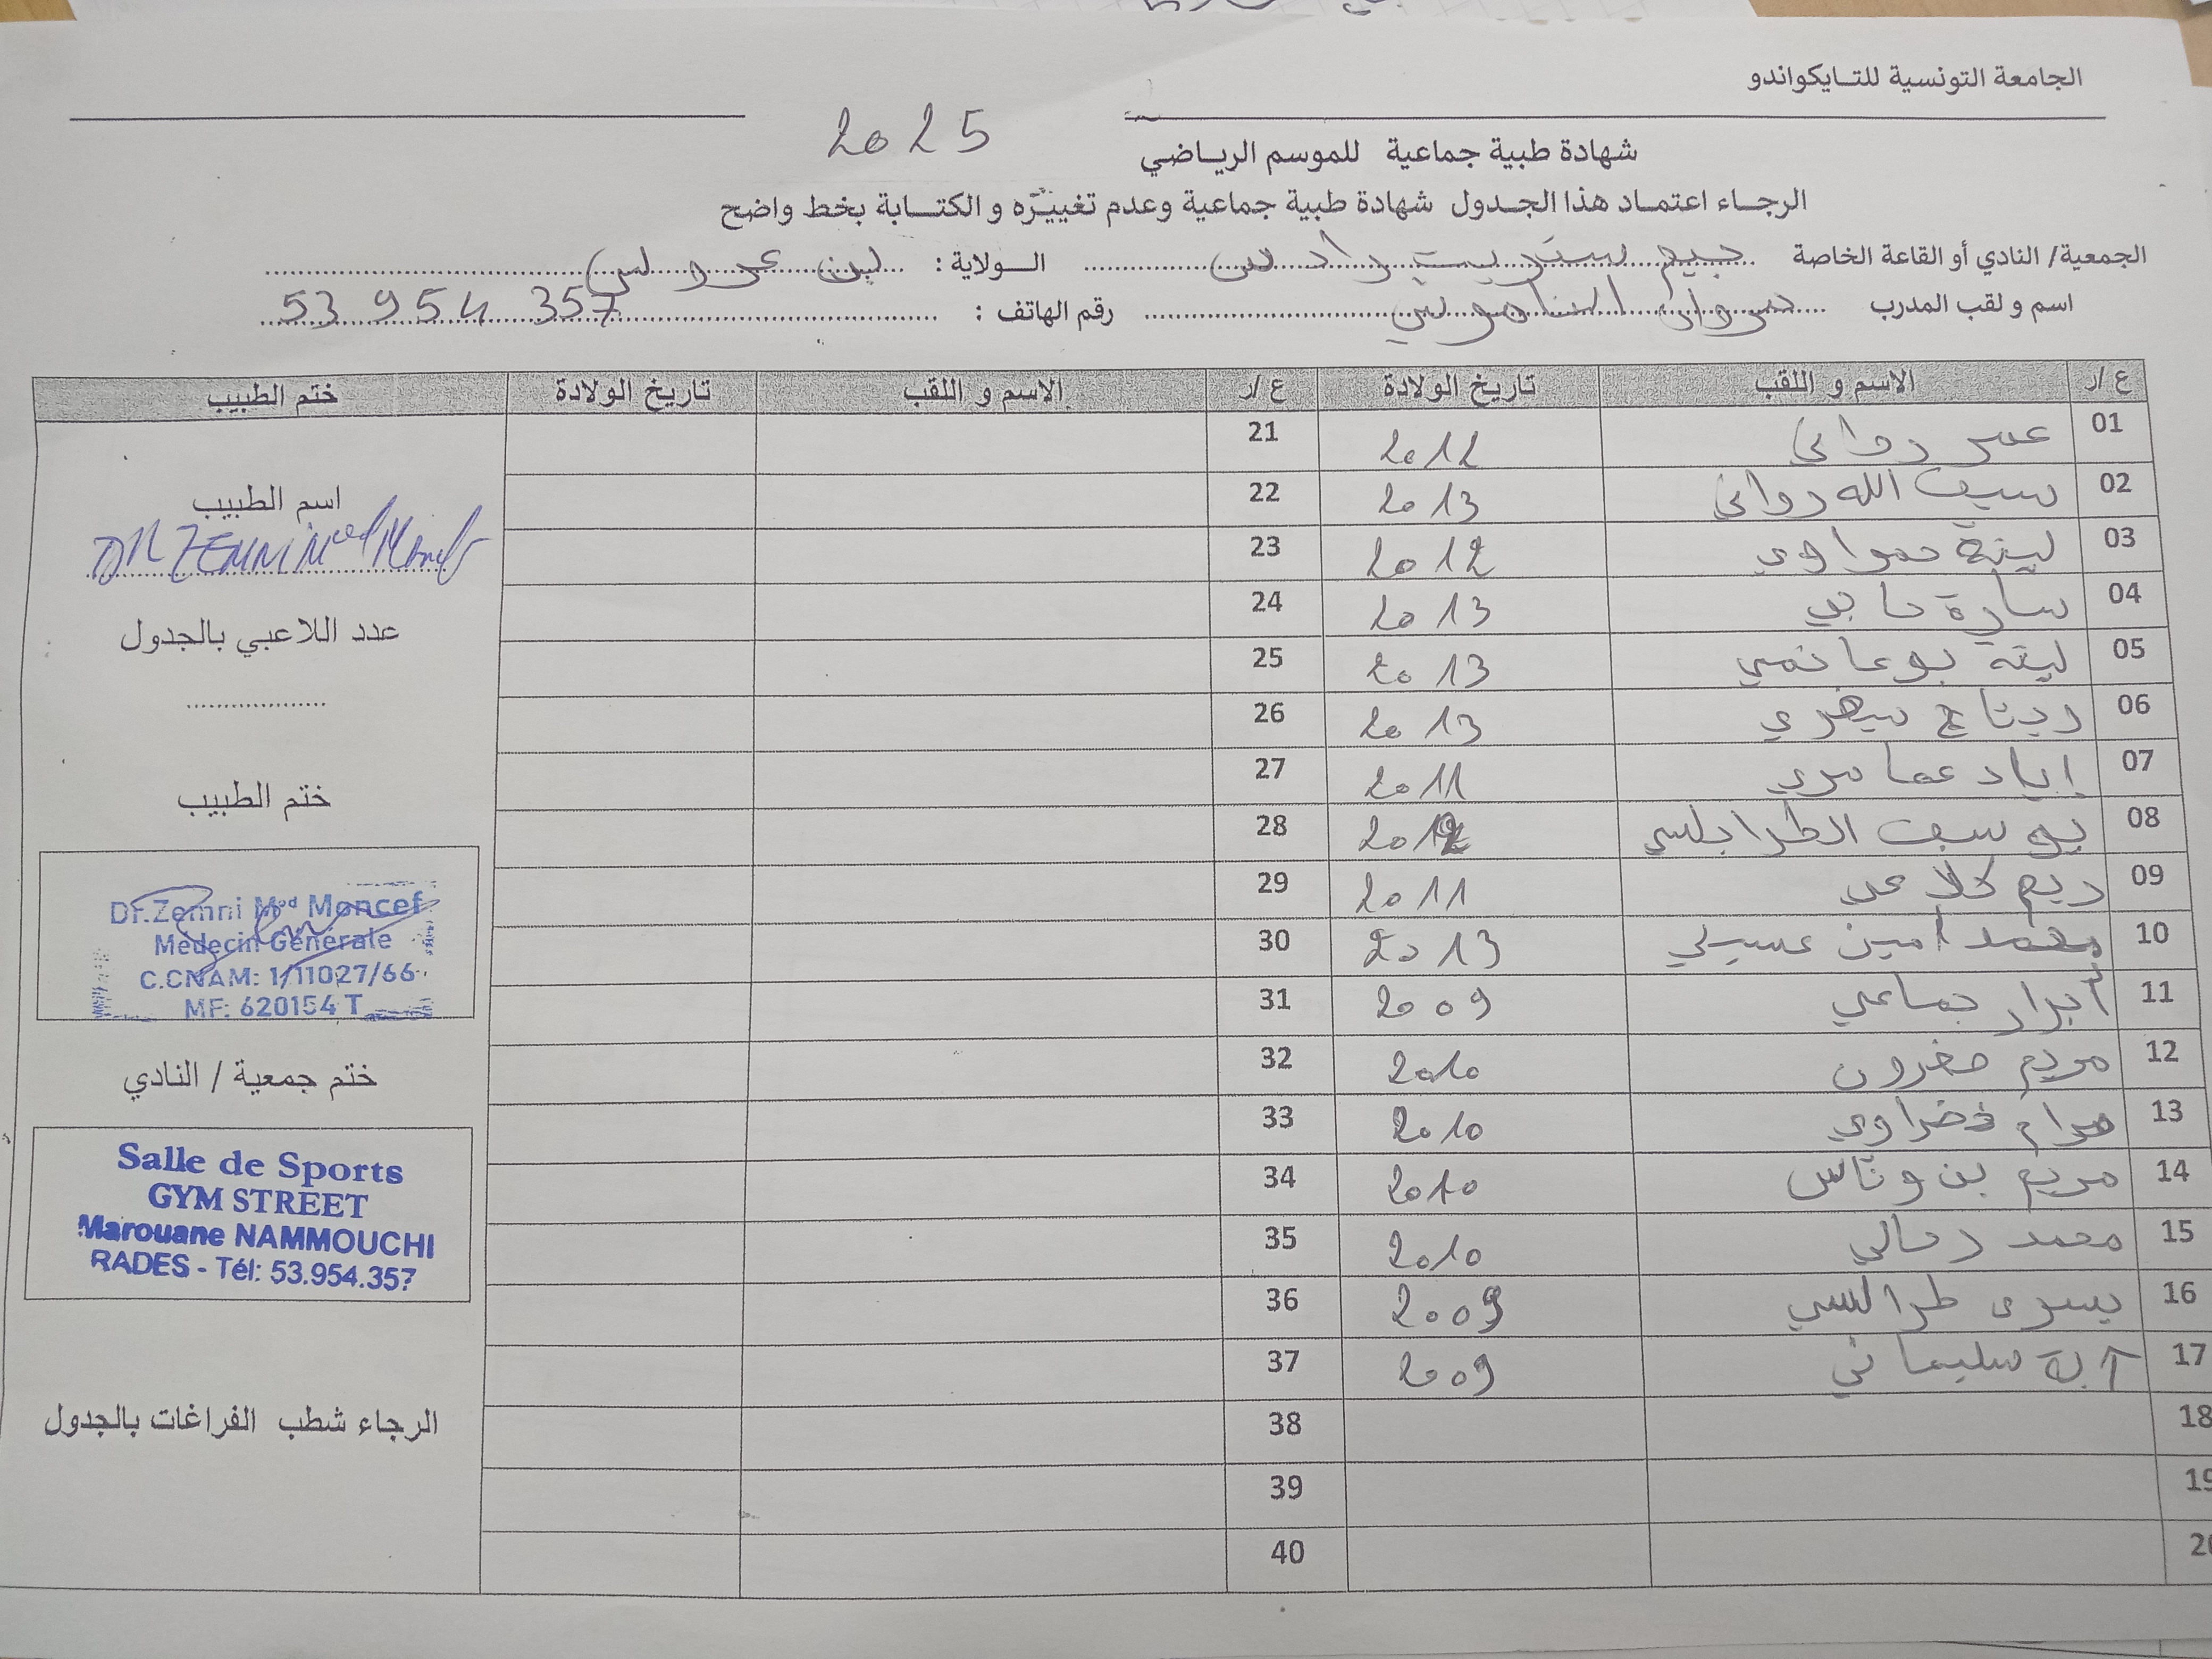 الجامعة التونسية للتايكواندو
شهادة طبية جماعية للموسم الرياضي 2025
الرجاء اعتماد هذا الجدول شهادة طبية جماعية وعدم تغييره و الكتابة بخط واضح
الجمعية/ النادي أو القاعة الخاصة جيم ستريت رادس الولاية : بن عروس
اسم و لقب المدرب مروان الناموشي رقم الهاتف : 53 954 357
ع /ر الاسم و اللقب تاريخ الولادة ع /ر الاسم و اللقب تاريخ الولادة ختم الطبيب
01 عمر رواني 2012 21
02 سيف الله رواني 2013 22
03 لينة حمراوي 2012 23
04 سارة 2013 24
05 لينة بوعانمي 2013 25
06 ريتاج 2013 26
07 إياد عمامري 2011 27
08 يوسف الطرابلسي 2012 28
09 ريم كلاعي 2011 29
10 محمد أمين عسيلي 2013 30
11 أبرار جماعي 2009 31
12 مريم مغرون 2010 32
13 مرام خضراوي 2010 33
14 مريم بن وناس 2010 34
15 محمد رحالي 2010 35
16 يسرى طرابلسي 2009 36
17 آية سليماني 2009 37
18 38
19 39
40
اسم الطبيب
DR ZEMNI Med Moncef
عدد اللاعبي بالجدول
ختم الطبيب
Dr.Zemni Med Moncef
Médecin Générale
C.CNAM: 1/11027/66
MF: 620154 T
ختم جمعية / النادي
Salle de Sports
GYM STREET
Marouane NAMMOUCHI
RADES - Tél: 53.954.357
الرجاء شطب الفراغات بالجدول